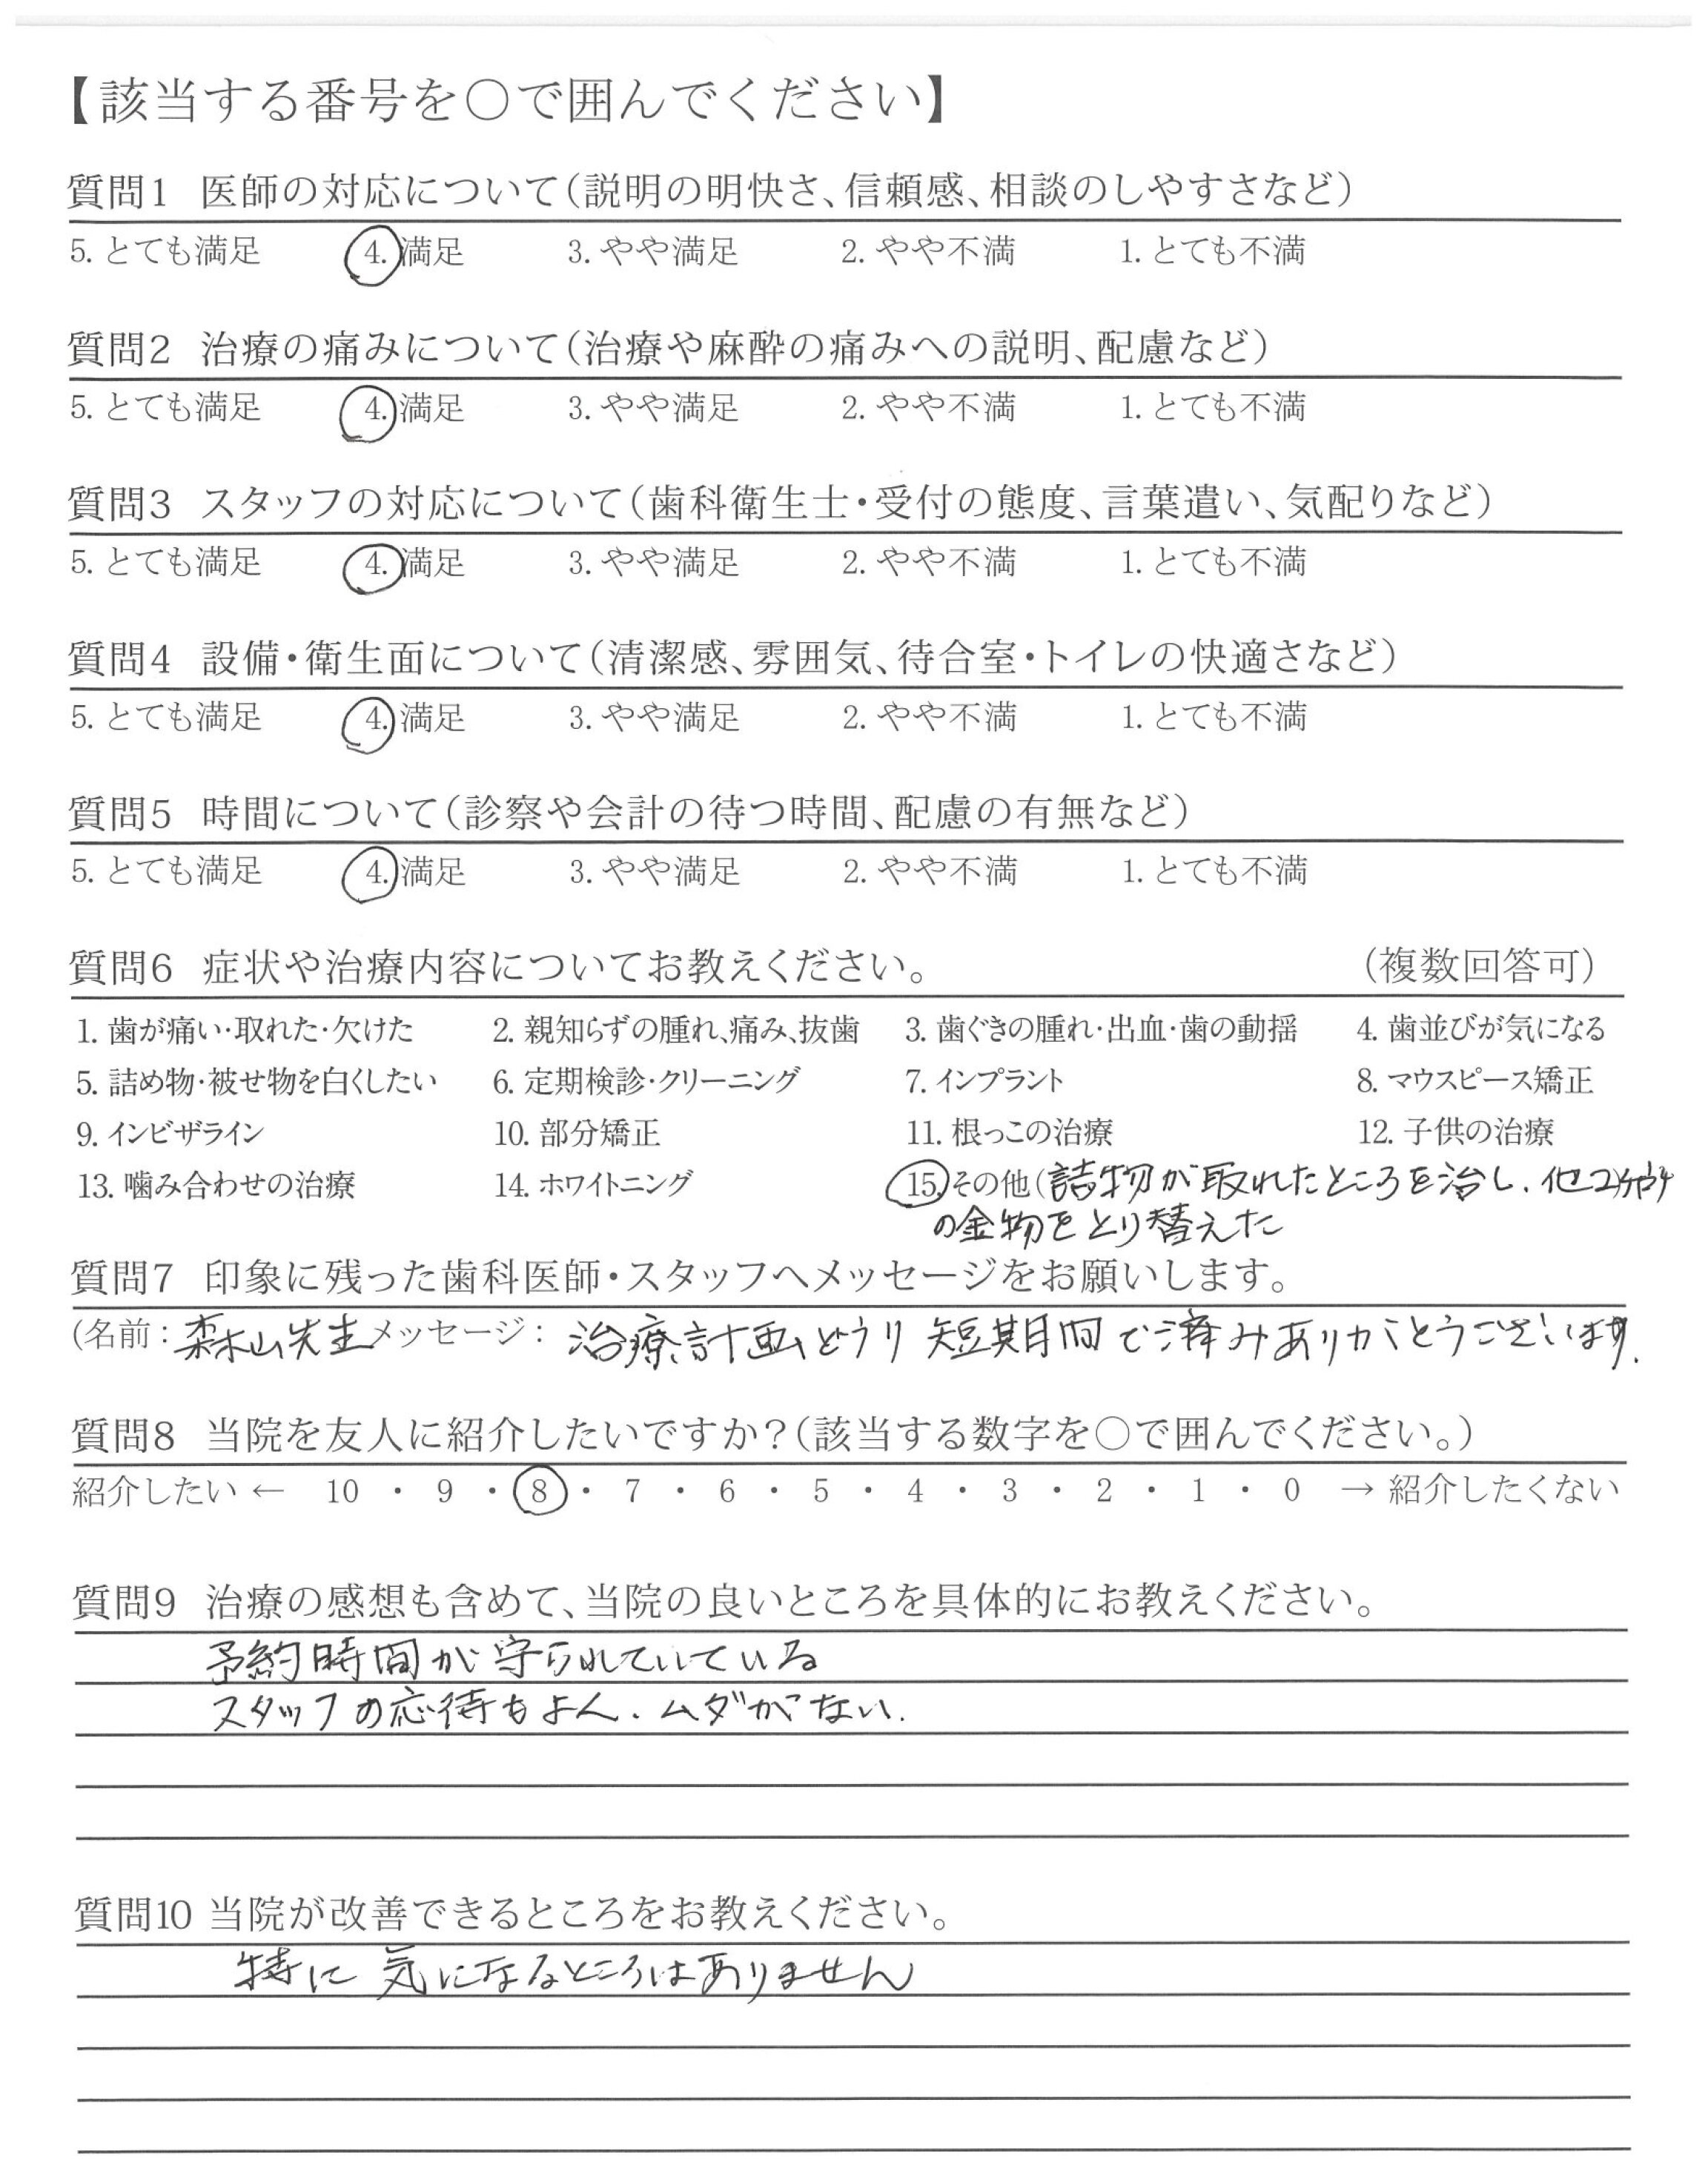 【該当する番号を〇で囲んでください】
質問1 医師の対応について(説明の明快さ、信頼感、相談のしやすさなど)
5. とても満足 4. 満足 3. やや満足 2. やや不満 1. とても不満
質問2 治療の痛みについて(治療や麻酔の痛みへの説明、配慮など)
5. とても満足 4. 満足 3. やや満足 2. やや不満 1. とても不満
質問3 スタッフの対応について(歯科衛生士・受付の態度、言葉遣い、気配りなど)
5. とても満足 4. 満足 3. やや満足 2. やや不満 1. とても不満
質問4 設備・衛生面について(清潔感、雰囲気、待合室・トイレの快適さなど)
5. とても満足 4. 満足 3. やや満足 2. やや不満 1. とても不満
質問5 時間について(診察や会計の待つ時間、配慮の有無など)
5. とても満足 4. 満足 3. やや満足 2. やや不満 1. とても不満
質問6 症状や治療内容についてお教えください。 (複数回答可)
1. 歯が痛い・取れた・欠けた 2. 親知らずの腫れ、痛み、抜歯 3. 歯ぐきの腫れ・出血・歯の動揺 4. 歯並びが気になる
5. 詰め物・被せ物を白くしたい 6. 定期検診・クリーニング 7. インプラント 8. マウスピース矯正
9. インビザライン 10. 部分矯正 11. 根っこの治療 12. 子供の治療
13. 噛み合わせの治療 14. ホワイトニング 15. その他(詰物が取れたところを治し、他2ヶ所
の金物をとり替えた
質問7 印象に残った歯科医師・スタッフへメッセージをお願いします。
(名前: 森山先生 メッセージ: 治療計画どうり短期間で済みありがとうございます.
質問8 当院を友人に紹介したいですか?(該当する数字を〇で囲んでください。)
紹介したい ← 10 ・ 9 ・ 8 ・ 7 ・ 6 ・ 5 ・ 4 ・ 3 ・ 2 ・ 1 ・ 0 → 紹介したくない
質問9 治療の感想も含めて、当院の良いところを具体的にお教えください。
予約時間が守られていている
スタッフの応待もよく、ムダがない.
質問10 当院が改善できるところをお教えください。
特に気になるところはありません